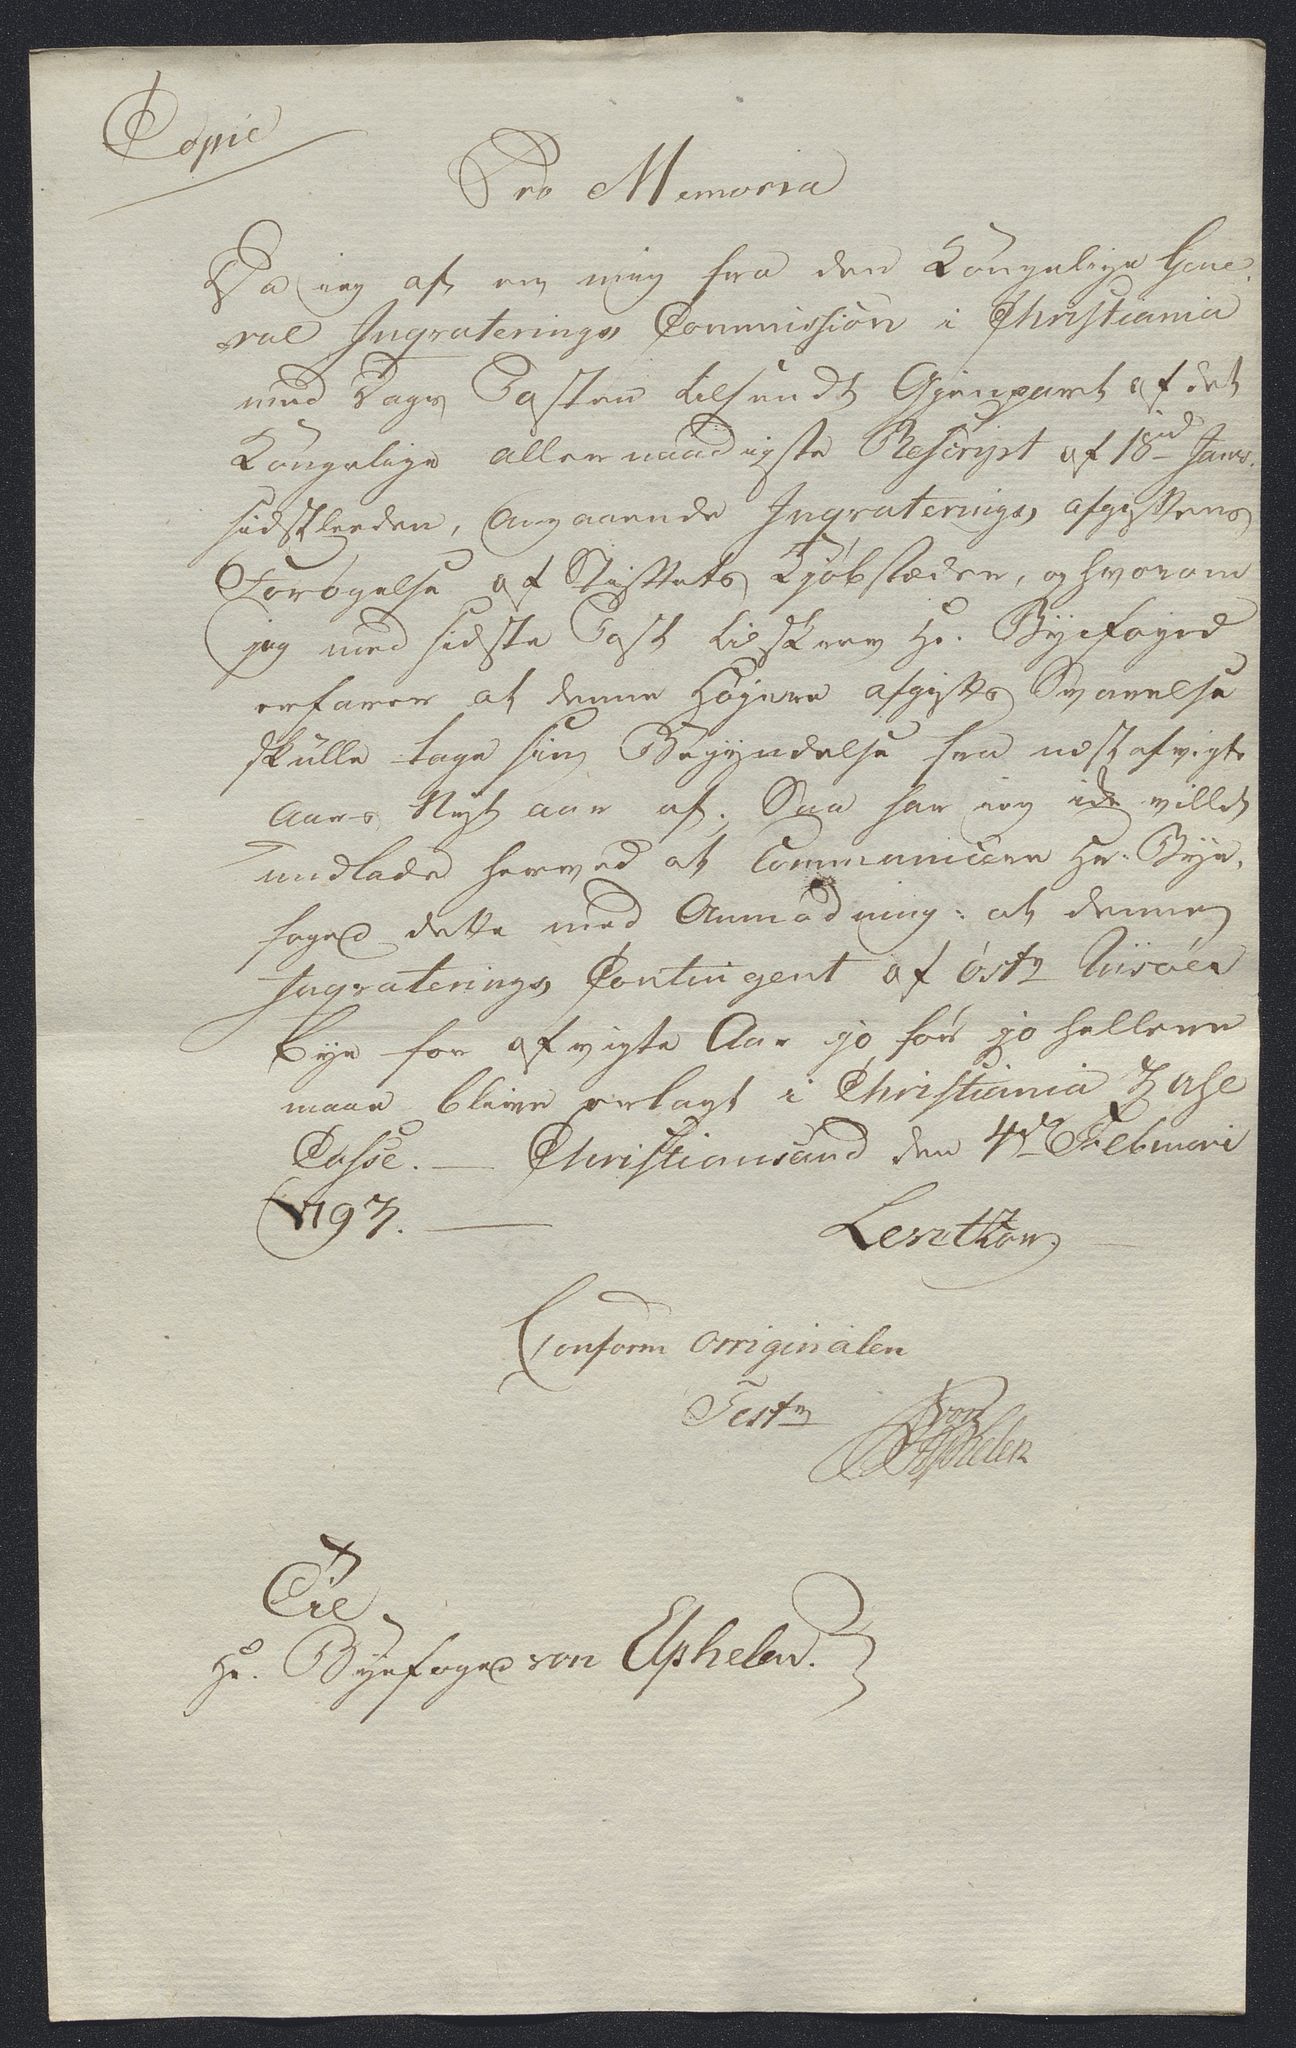 Copie
Pro Memoria
Da ieg af en mig fra den Kongelige Gene-
ral Inqvarterings Commission i Christiania
med Dags Posten tilsendt Gjenpart af det
Kongelige allernaadigste Rescript af 18de Janv.
sidstleeden, angaaende Inqvarterings afgiftens
Forøgelse af Stiftets Kjøbstæder, og hvorom
jeg med sidste Post tilskrev Hr. Byefoged
erfarer at denne Højere afgifts Svarelse
skulle tage sin Begyndelse fra nest afvigte
Aars Nyt aar af. Saa har ieg icke villet
undlade herved at Communicere Hr. Bye-
foged dette med Anmodning: at denne
Inqvarterings Contingent af Øster Riisøer
Bye for afvigte Aar jo før jo hellere
maae blive erlagt i Christiania Zahl
Casse. — Christiansand den 4de Februari
1793. —
Levetzow.
Conform originalen
Test
von Elphelen
Til
Hr. Byefoged von Elphelen.